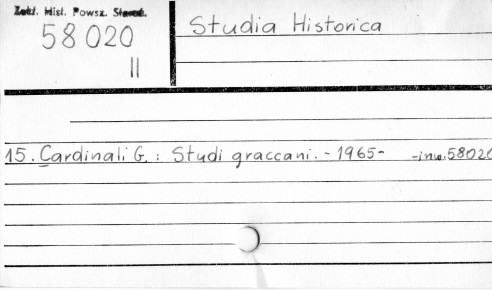 Zakł. Hist. Powsz. Starož.
58 020
II
Studia Historica
15. Cardinali G. : Studi graccani. - 1965 - - inw. 58020